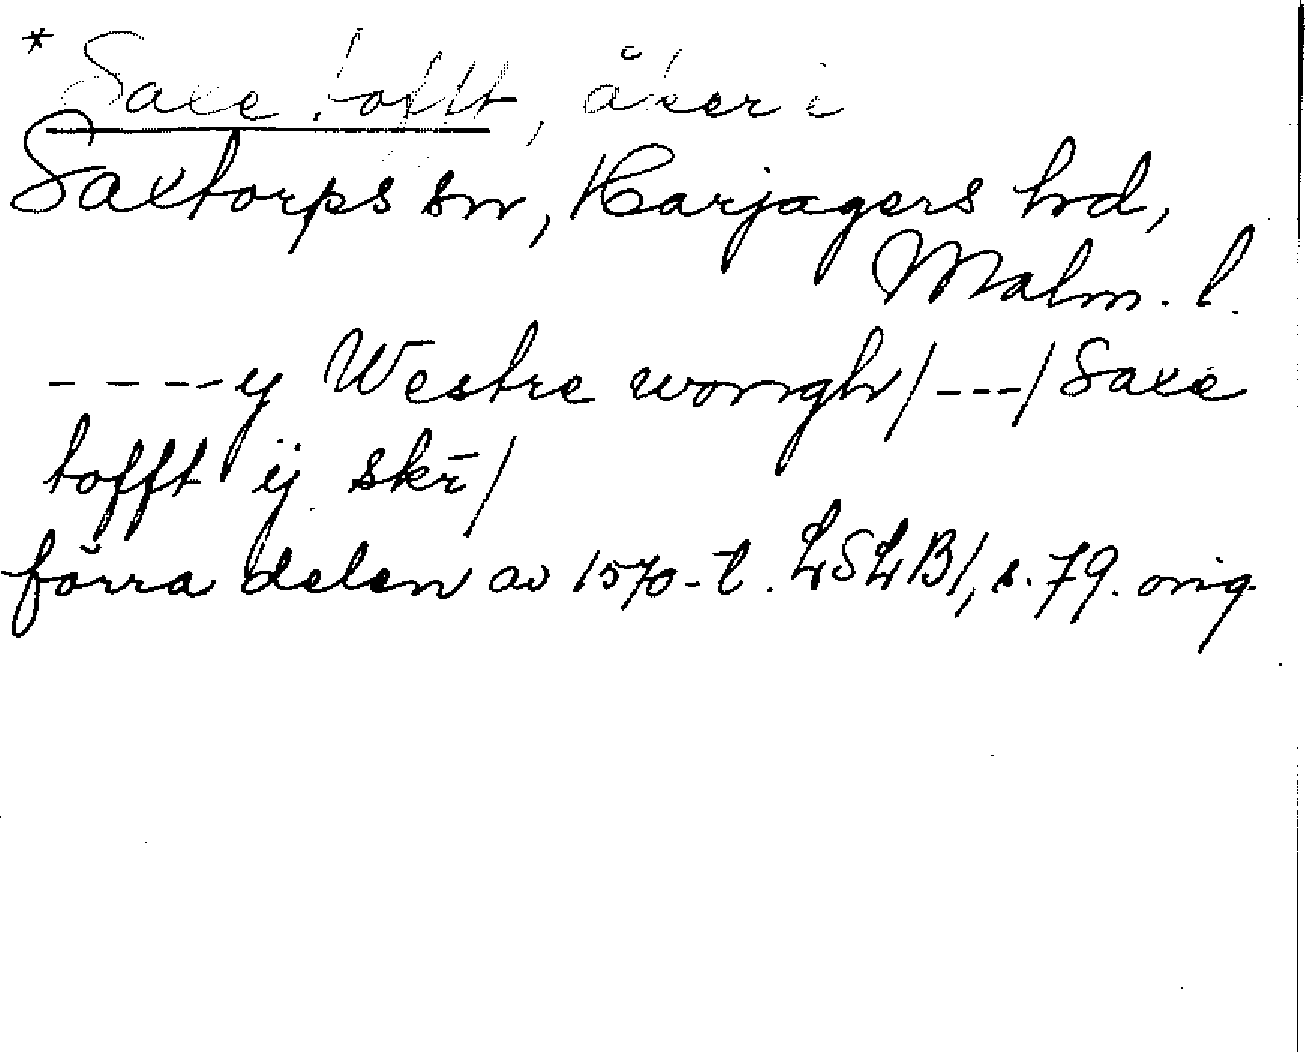 * Saxe tofft, åker i
Saxtorps sn, Harjagers hrd,
Malm. l.
- - - - y Westre wongh / --- / Saxe
tofft ij skr̄ /
förra delen av 1570-t. LSLB 1, s. 79. orig.